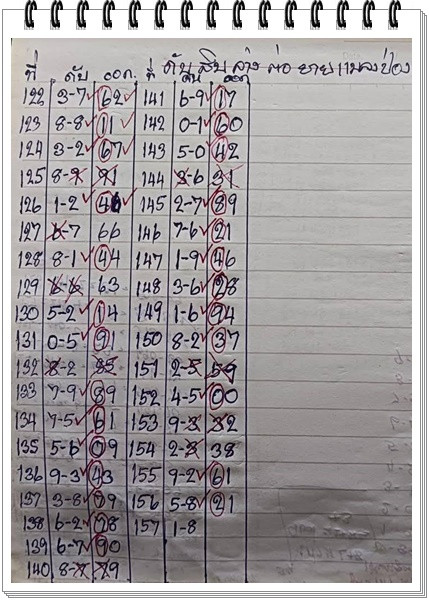 ที่ ดับ ออก ที่ ดับ สิบ ล่าง ต่อ ยาย แมลงป่อง
ดับ ออก
122 3-7 62 141 6-9 17
123 8-8 11 142 0-1 60
124 3-2 67 143 5-0 42
125 8-9 91 144 3-6 31
126 1-2 46 145 2-7 89
127 6-7 66 146 7-6 21
128 8-1 44 147 1-9 46
129 6-6 63 148 3-6 28
130 5-2 14 149 1-6 94
131 0-5 91 150 8-2 37
132 8-2 35 151 2-5 59
133 7-9 89 152 4-5 00
134 7-5 61 153 9-3 32
135 5-6 09 154 2-3 38
136 9-3 43 155 9-2 61
137 3-8 79 156 5-8 21
138 6-2 78 157 1-8
139 6-7 90
140 8-7 29